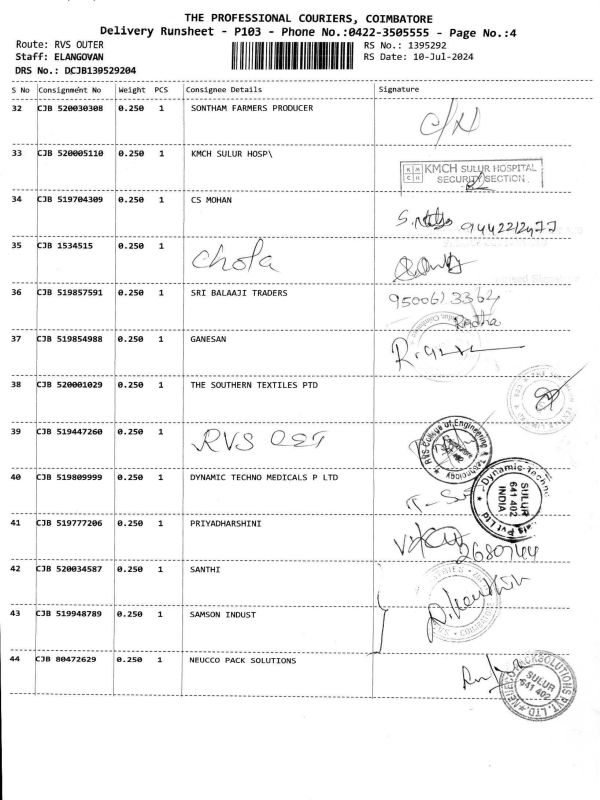 THE PROFESSIONAL COURIERS, COIMBATORE
Delivery Runsheet - P103 - Phone No.:0422-3505555 - Page No.:4
Route: RVS OUTER RS No.: 1395292
Staff: ELANGOVAN RS Date: 10-Jul-2024
DRS No.: DCJB139529204
S No Consignment No Weight PCS Consignee Details Signature
32 CJB 520030308 0.250 1 SONTHAM FARMERS PRODUCER
33 CJB 520005110 0.250 1 KMCH SULUR HOSP\
KMCH SULUR HOSPITAL
SECURITY SECTION
34 CJB 519704309 0.250 1 CS MOHAN
35 CJB 1534515 0.250 1
Chola
36 CJB 519857591 0.250 1 SRI BALAAJI TRADERS
Radha
37 CJB 519854988 0.250 1 GANESAN
38 CJB 520001029 0.250 1 THE SOUTHERN TEXTILES PTD
39 CJB 519447260 0.250 1
RVS CET
RVS College of Engineering & Technology
40 CJB 519809999 0.250 1 DYNAMIC TECHNO MEDICALS P LTD
Dynamic Techno
Pvt Ltd
SULUR
641 402
INDIA
41 CJB 519777206 0.250 1 PRIYADHARSHINI
42 CJB 520034587 0.250 1 SANTHI
43 CJB 519948789 0.250 1 SAMSON INDUST
44 CJB 80472629 0.250 1 NEUCCO PACK SOLUTIONS
SULUR
641 402